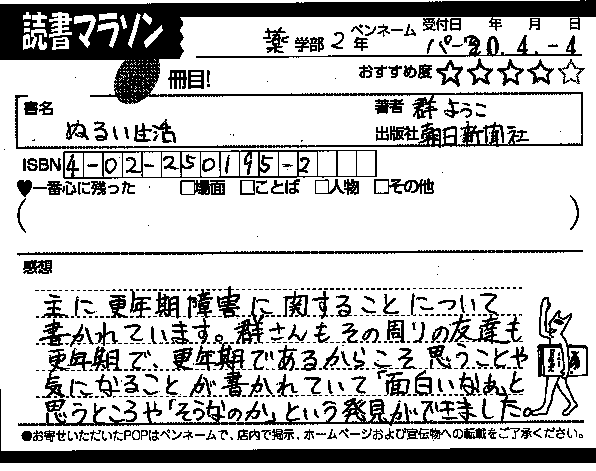 読書マラソン
薬 学部 2 年 ペンネーム パープ 受付日 年 月 日 20.4.-4
冊目! おすすめ度 ☆☆☆☆☆
書名 ぬるい生活 著者 群ようこ
出版社 朝日新聞社
ISBN 4-02-250195-2
♥一番心に残った □場面 □ことば □人物 □その他
( )
感想
主に更年期障害に関することについて
書かれています。群さんもその周りの友達も
更年期で、更年期であるからこそ思うことや
気になることが書かれていて「面白いなぁ」と
思うところや「そうなのか」という発見ができました。
●お寄せいただいたPOPはペンネームで、店内で掲示、ホームページおよび宣伝物への転載をご了承ください。